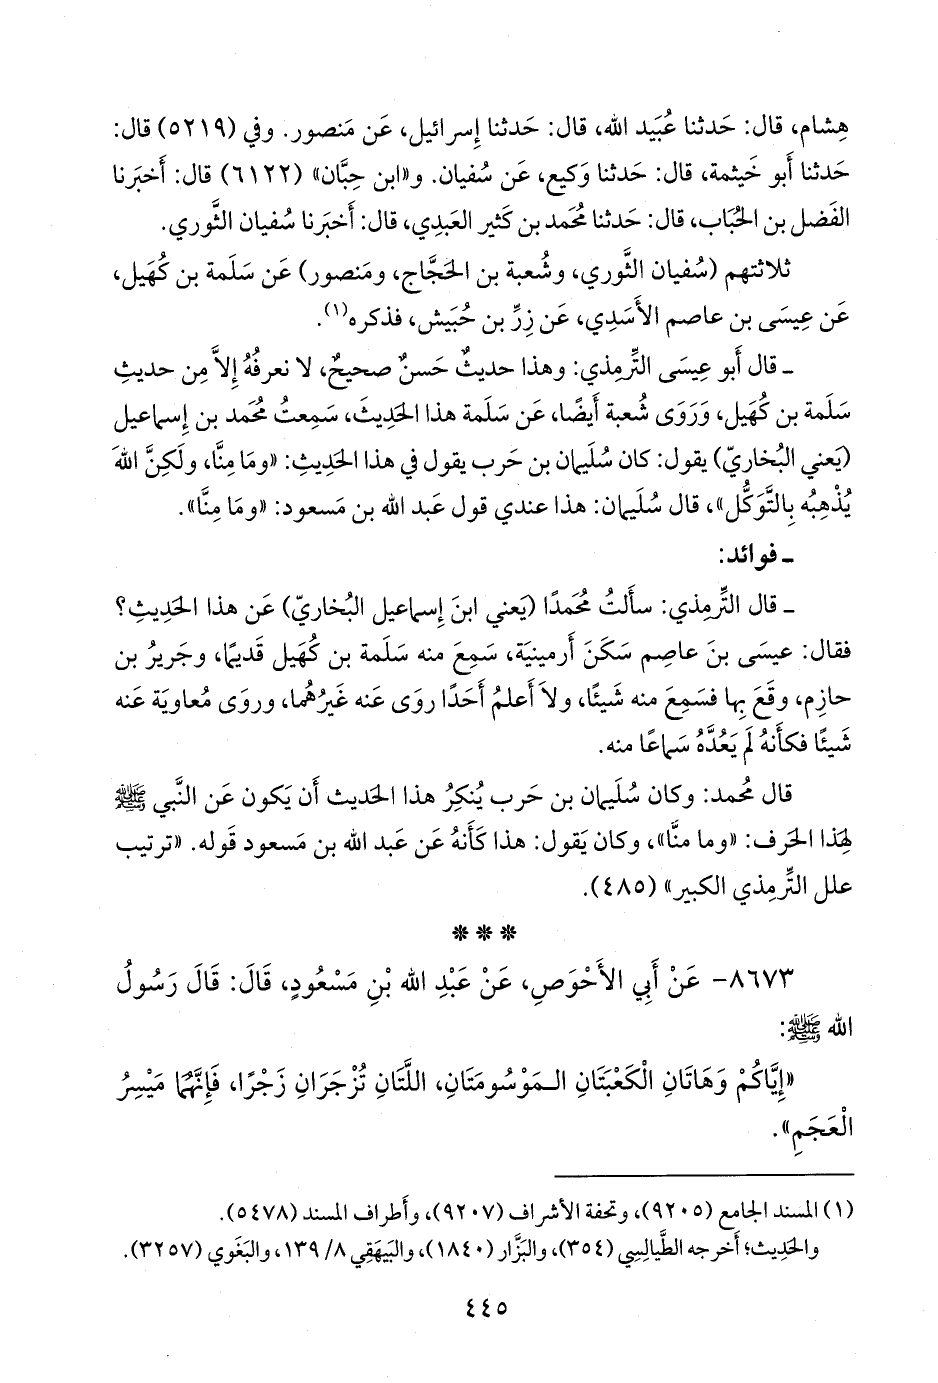 هِشام، قال: حَدثنا عُبَيد الله، قال: حَدثنا إِسرائيل، عَن مَنصور. وفي (٥٢١٩) قال:
حَدثنا أَبو خَيثمة، قال: حَدثنا وَكيع، عَن سُفيان. و«ابن حِبَّان» (٦١٢٢) قال: أَخبَرنا
الفَضل بن الحُبَاب، قال: حَدثنا مُحمد بن كَثير العَبدي، قال: أَخبَرنا سُفيان الثَّوري.
ثلاثتهم (سُفيان الثَّوري، وشُعبة بن الحَجَّاج، ومَنصور) عَن سَلَمة بن كُهَيل،
عَن عِيسَى بن عاصم الأَسَدِي، عَن زِرِّ بن حُبَيش، فذكره(١).
ـ قال أَبو عِيسَى التِّرمِذي: وهذا حديثٌ حَسنٌ صحيحٌ، لا نعرفُهُ إِلاَّ مِن حديثِ
سَلَمة بن كُهَيل، وَرَوَى شُعبة أَيضًا، عَن سَلَمة هذا الحَديثَ، سَمِعتُ مُحَمد بن إِسماعيل
(يَعني البُخاريّ) يقول: كان سُلَيمان بن حَرب يقول في هذا الحَدِيثِ: «ومَا مِنَّا، ولَكِنَّ اللهَ
يُذْهِبُه بِالتَّوَكُّل»، قال سُلَيمان: هذا عندي قول عَبد الله بن مَسعود: «ومَا مِنَّا».
ـ فوائد:
ـ قال التِّرمِذي: سأَلتُ مُحَمدًا (يَعني ابنَ إِسماعيل البُخاريّ) عَن هذا الحَدِيثِ؟
فقال: عيسَى بنَ عاصِم سَكَنَ أَرمينيَة، سَمِعَ منه سَلَمة بن كُهَيل قَديمًا، وجَريرُ بن
حازِم، وقَعَ بِها فسَمِعَ منه شَيئًا، ولاَ أَعلمُ أَحَدًا روَى عَنه غَيرُهُما، وروَى مُعاويَة عَنه
شَيئًا فكأَنهُ لَم يَعُدَّهُ سَماعًا منه.
قال مُحمد: وكان سُلَيمان بن حَرب يُنكِرُ هذا الحَديث أَن يَكون عَن النَّبي ﷺ
لِهذا الحَرف: «وما منَّا»، وكان يَقول: هذا كَأَنهُ عَن عَبد الله بن مَسعود قَوله. «ترتيب
علل التِّرمِذي الكبير» (٤٨٥).
* * *
٨٦٧٣- عَنْ أَبِي الأَحْوَصِ، عَنْ عَبْدِ الله بْنِ مَسْعُودٍ، قَالَ: قَالَ رَسُولُ
الله ﷺ:
«إِيَّاكُمْ وَهَاتَانِ الْكَعْبَتَانِ الـمَوْسُومَتَانِ، اللَّتَانِ تُزْجَرَانِ زَجْرًا، فَإِنَّهُمَا مَيْسِرُ
الْعَجَمِ».
(١) المسند الجامع (٩٢٠٥)، وتحفة الأشراف (٩٢٠٧)، وأطراف المسند (٥٤٧٨).
والحَدِيث؛ أخرجه الطَّيالِسِي (٣٥٤)، والبَزَّار (١٨٤٠)، والبَيهَقِي ٨/ ١٣٩، والبَغَوي (٣٢٥٧).
٤٤٥